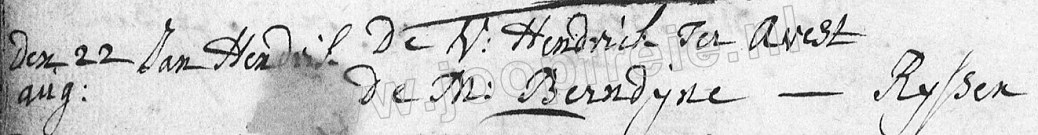 den 22 Jan Hendrik De V: Hendrick Ter Avest
aug: De M: Berndyne — Ryssen
www.jooplreie.nl